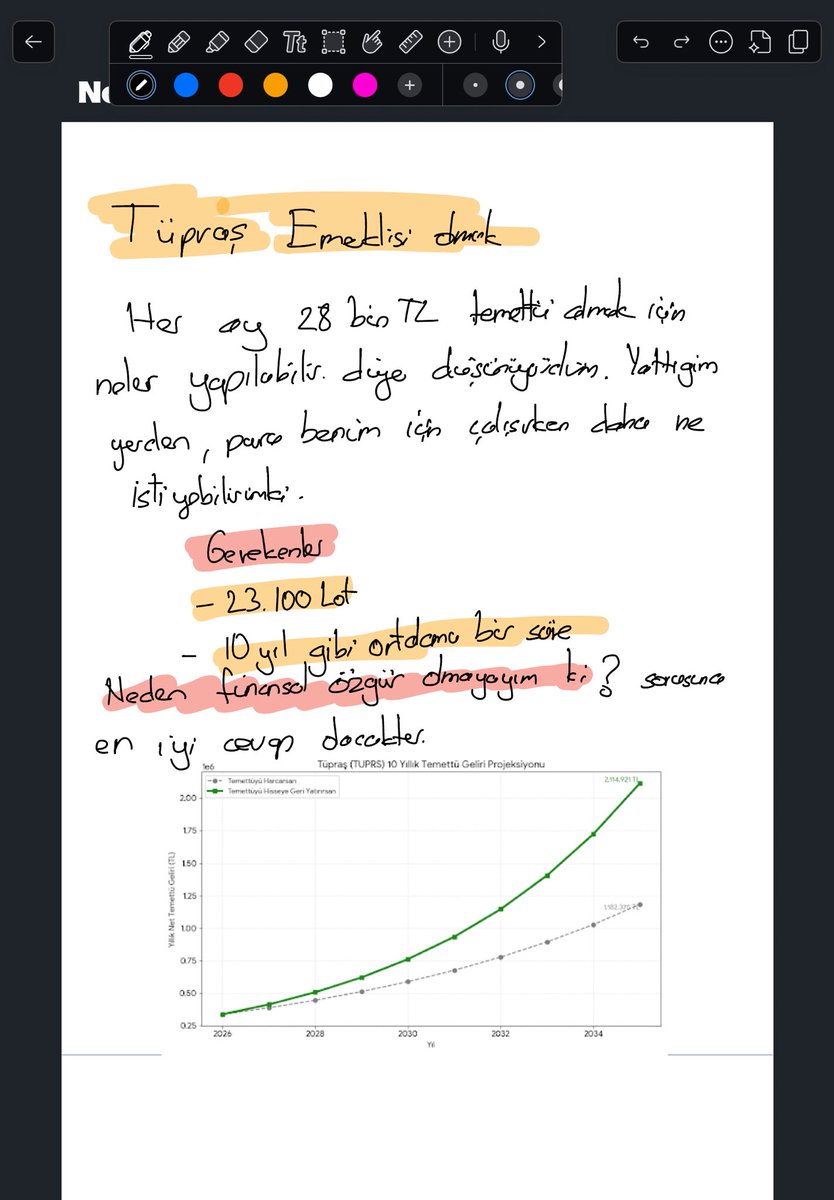 Tt
No
Tüpraş Emeklisi olmak
Her ay 28 bin TL temettü almak için
neler yapılabilir. diye düşünüyordum. Yattığım
yerden, para benim için çalışırken daha ne
isteyebilirimki.
Gerekenler
- 23.100 Lot
- 10 yıl gibi ortalama bir süre
Neden finansal özgür olmayayım ki? sorusuna
en iyi cevap olacaktır.
Tüpraş (TUPRS) 10 Yıllık Temettü Geliri Projeksiyonu
1e6
Temettüyü Harcarsan
Temettüyü Hisseye Geri Yatırırsan
2,114,921 TL
2.00
1.75
1.50
1.25
1,182,375 TL
1.00
0.75
0.50
0.25
Yıllık Net Temettü Geliri (TL)
2026 2028 2030 2032 2034
Yıl